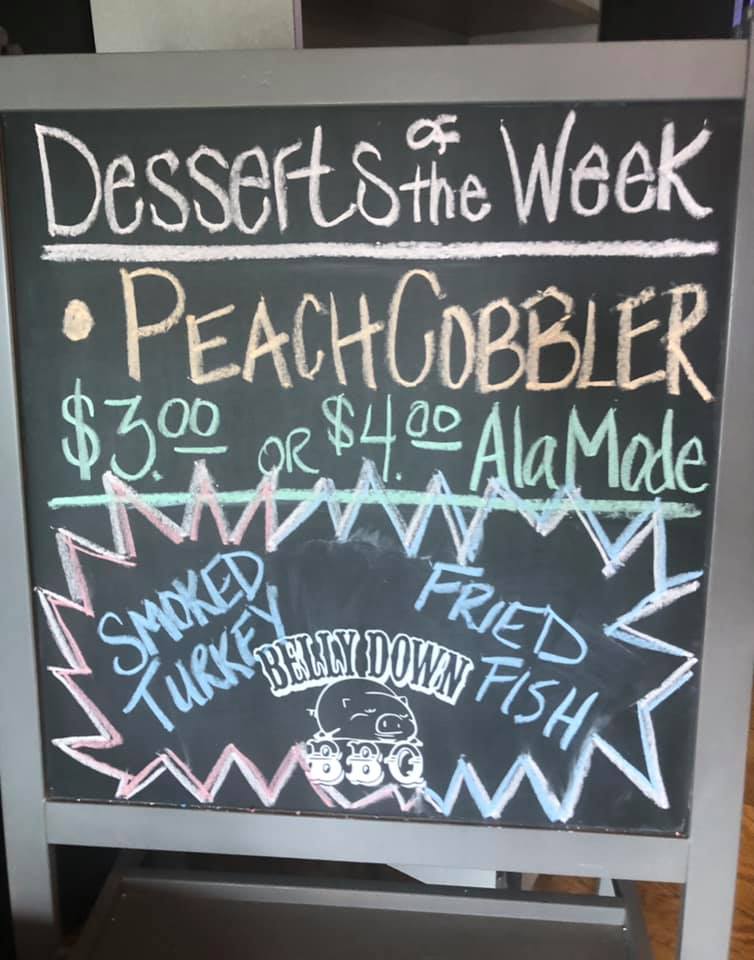 Desserts of the Week
• PEACH COBBLER
$3.00 OR $4.00 Ala Mode
SMOKED
TURKEY
FRIED
FISH
BELLY DOWN
BBQ